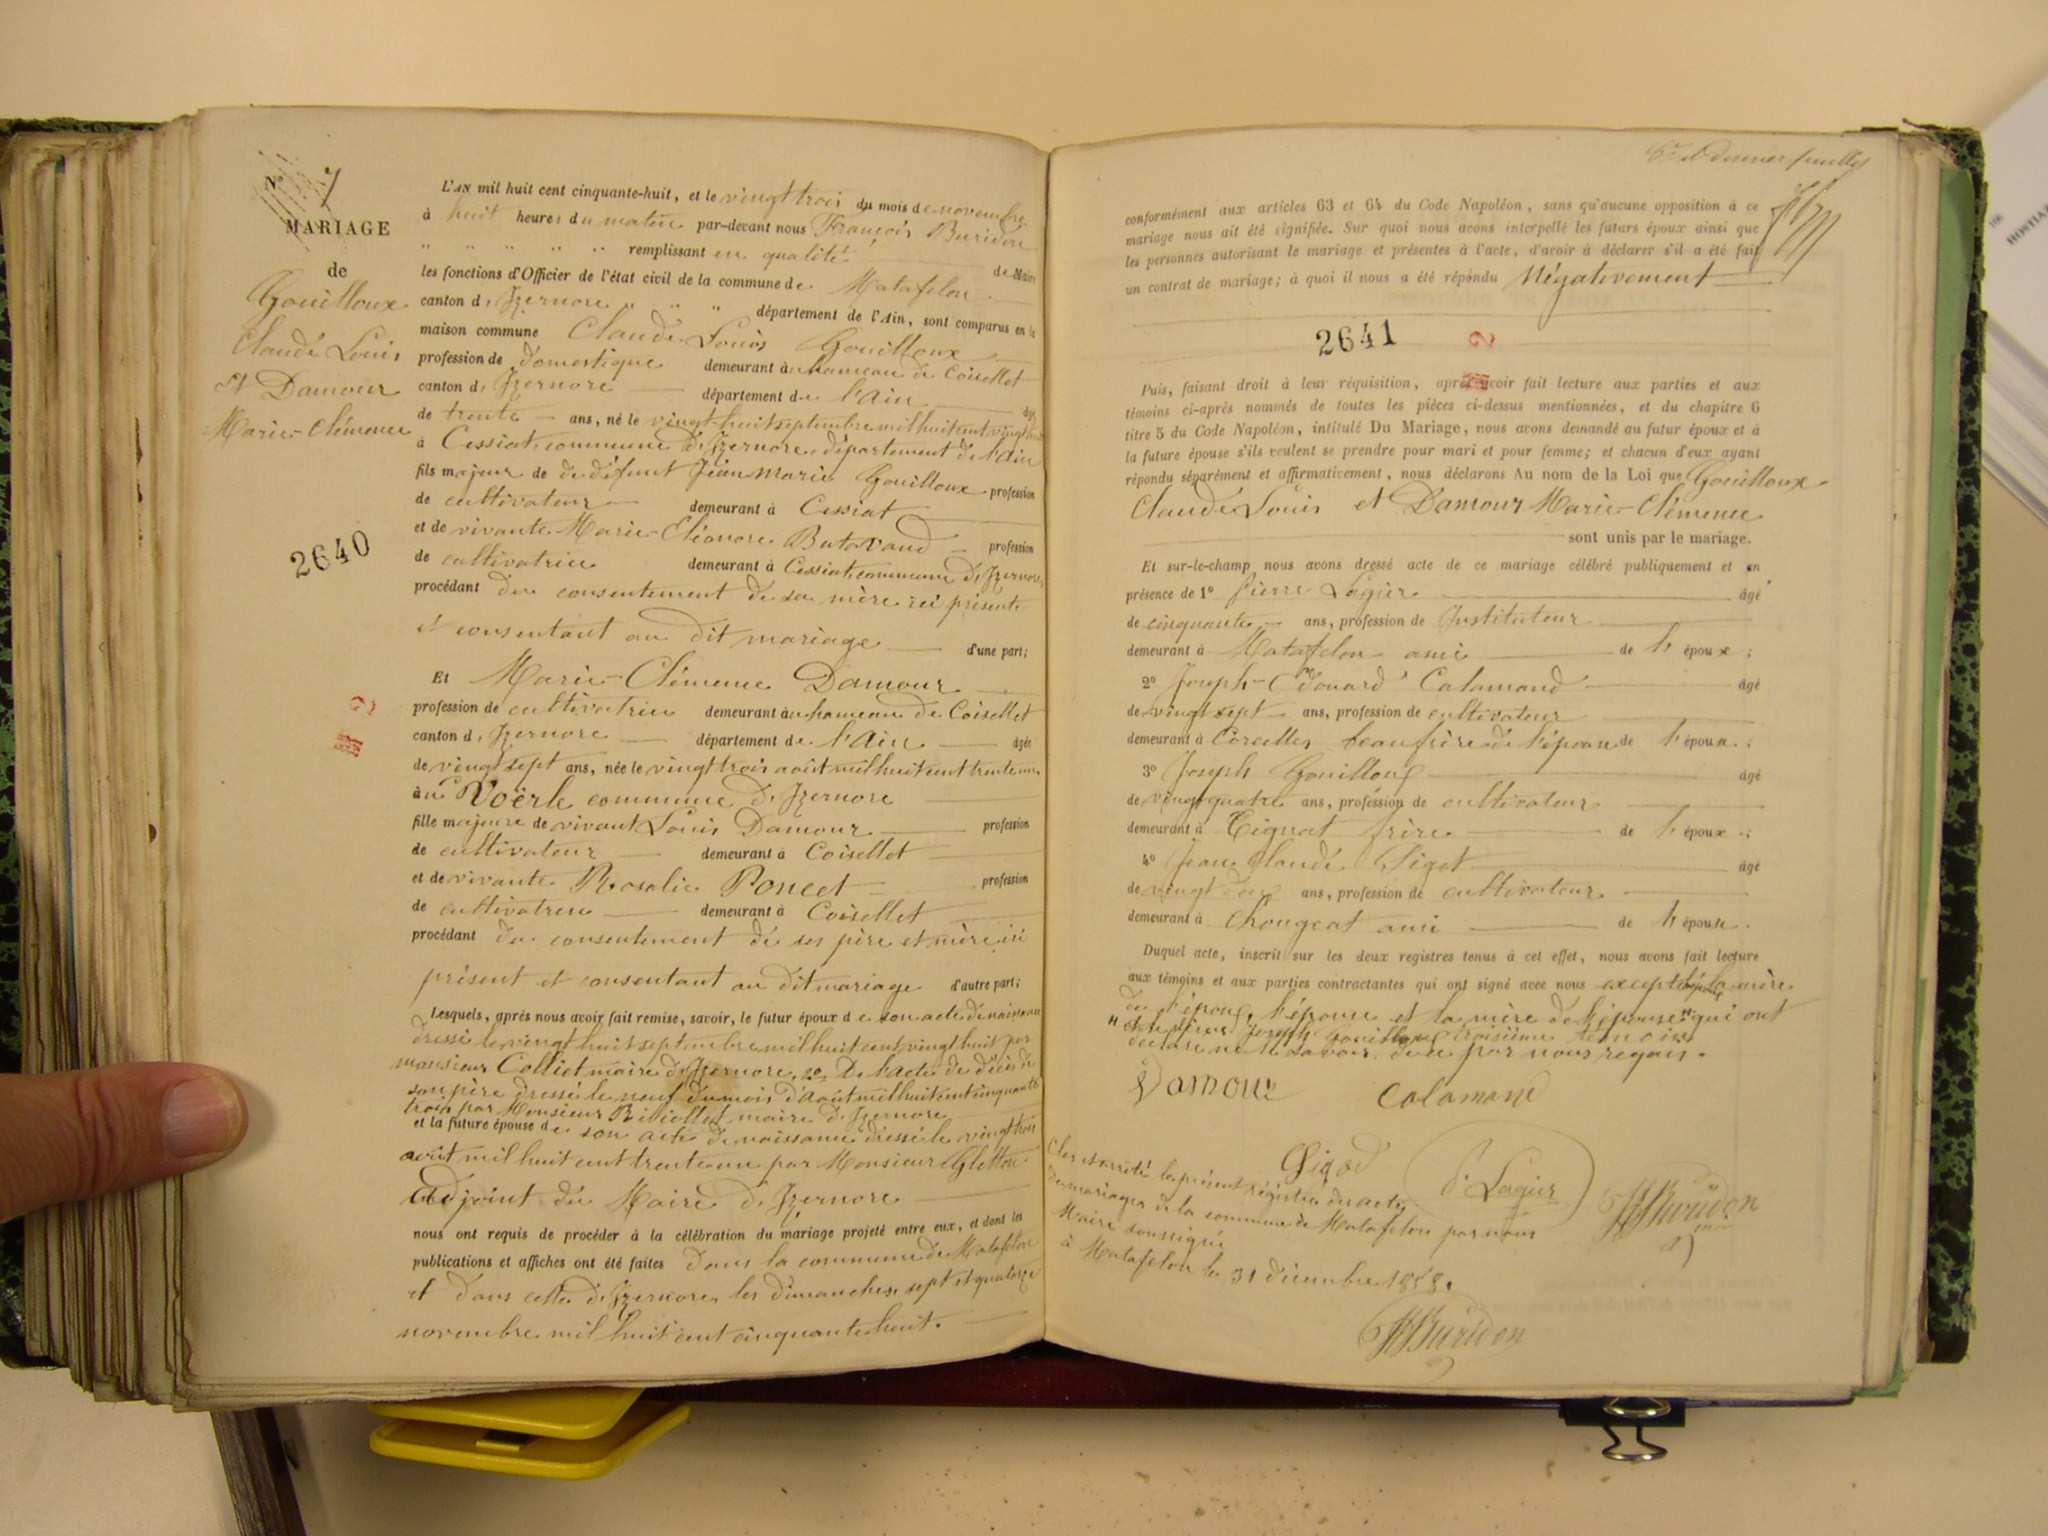 N° 7
MARIAGE
de
Gouilloux
Claude Louis
et Damour
Marie-Clémence
2640
L'AN mil huit cent cinquante-huit, et le vingt trois du mois de novembre
à huit heures du matin par-devant nous François Buridon
remplissant en qualité de Maire
les fonctions d'Officier de l'état civil de la commune de Matafelon
canton d'Izernore département de l'Ain, sont comparus en la
maison commune Claude Louis Gouilloux
profession de domestique demeurant au hameau de Coisellet
canton d'Izernore département de l'Ain âgé
de trente ans, né le vingt huit septembre mil huit cent vingt huit
à Cessiat, commune d'Izernore, département de l'Ain
fils majeur de de défunt Jean Marie Gouilloux profession
de cultivateur demeurant à Cessiat
et de vivante Marie-Eléonore Butavand profession
de cultivatrice demeurant à Cessiat, commune d'Izernore,
procédant du consentement de sa mère ici présente
et consentant au dit mariage d'une part;
Et Marie-Clémence Damour
profession de cultivatrice demeurant au hameau de Coisellet
canton d'Izernore département de l'Ain âgée
de vingt sept ans, née le vingt trois août mil huit cent trente un
au Voërle commune d'Izernore
fille majeure de vivant Louis Damour profession
de cultivateur demeurant à Coisellet
et de vivante Rosalie Poncet profession
de cultivatrice demeurant à Coisellet
procédant du consentement de ses père et mère ici
présent et consentant au dit mariage d'autre part;
Lesquels, après nous avoir fait remise, savoir, le futur époux de son acte de naissance
dressé le vingt huit septembre mil huit cent vingt huit par
monsieur Colliet maire d'Izernore, 2° de l'acte de décès de
son père dressé le neuf du mois d'août mil huit cent cinquante
trois par Monsieur maire d'Izernore
et la future épouse de son acte de naissance dressé le vingt trois
août mil huit cent trente un par Monsieur Gletton
adjoint du Maire d'Izernore
nous ont requis de procéder à la célébration du mariage projeté entre eux, et dont les
publications et affiches ont été faites dans la commune de Matafelon
et dans celle d'Izernore, les dimanches sept et quatorze
novembre mil huit cent cinquante huit.
6e et dernier feuillet
conformément aux articles 63 et 64 du Code Napoléon, sans qu'aucune opposition à ce
mariage nous ait été signifiée. Sur quoi nous avons interpellé les futurs époux ainsi que
les personnes autorisant le mariage et présentes à l'acte, d'avoir à déclarer s'il a été fait
un contrat de mariage; à quoi il nous a été répondu Négativement
2641
Puis, faisant droit à leur réquisition, après avoir fait lecture aux parties et aux
témoins ci-après nommés de toutes les pièces ci-dessus mentionnées, et du chapitre 6
titre 5 du Code Napoléon, intitulé Du Mariage, nous avons demandé au futur époux et à
la future épouse s'ils veulent se prendre pour mari et pour femme; et chacun d'eux ayant
répondu séparément et affirmativement, nous déclarons Au nom de la Loi que Gouilloux
Claude Louis et Damour Marie-Clémence
sont unis par le mariage.
Et sur-le-champ nous avons dressé acte de ce mariage célébré publiquement et en
présence de 1° Pierre Lagier âgé
de cinquante ans, profession de Instituteur
demeurant à Matafelon ami de l'époux;
2° Joseph-Edouard Calamand âgé
de vingt sept ans, profession de cultivateur
demeurant à Corcelles beaufrère de l'épouse de l'épouse;
3° Joseph Gouilloux âgé
de vingt quatre ans, profession de cultivateur
demeurant à Tignat frère de l'époux;
4° Jean Claude Sigot âgé
de vingt ans, profession de cultivateur
demeurant à Chougeat ami de l'épouse.
Duquel acte, inscrit sur les deux registres tenus à cet effet, nous avons fait lecture
aux témoins et aux parties contractantes qui ont signé avec nous excepté la mère
de l'époux, l'épouse et la mère de l'épouse qui ont
Joseph Gouilloux troisième témoin
déclaré ne le savoir de ce par nous requis.
Damour
Calamand
Sigod
P. Lagier
Buridon
Clos et arrêté le présent registre des actes
de mariages de la commune de Matafelon par nous
Maire soussigné
à Matafelon le 31 décembre 1858.
Buridon